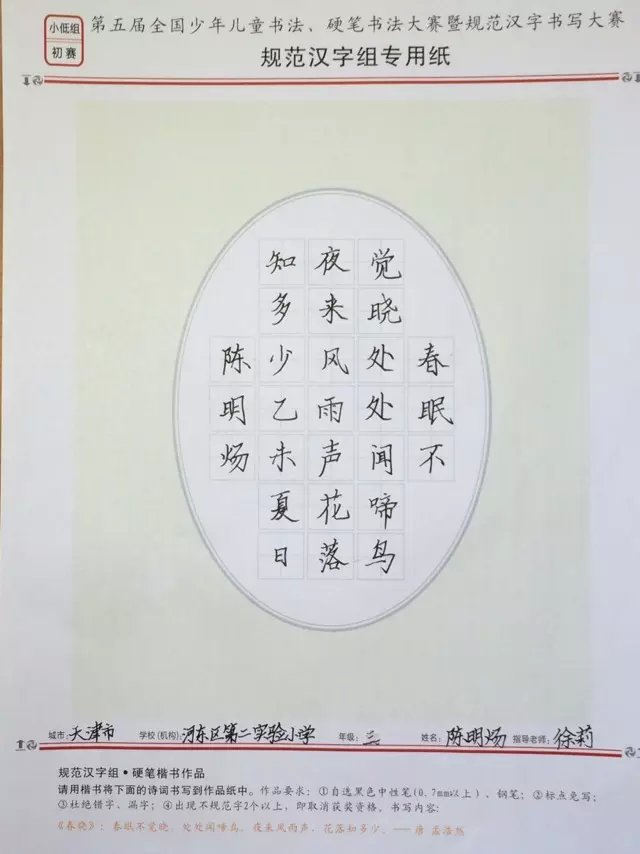 小低组
初赛
第五届全国少年儿童书法、硬笔书法大赛暨规范汉字书写大赛
规范汉字组专用纸
春眠不
觉晓处处闻啼鸟
夜来风雨声花落
知多少乙未夏日
陈明炀
城市：天津市 学校(机构)：河东区第二实验小学 年级：三 姓名：陈明炀 指导老师：徐莉
规范汉字组·硬笔楷书作品
请用楷书将下面的诗词书写到作品纸中。作品要求：①自选黑色中性笔(0.7mm以上)、钢笔；②标点免写；
③杜绝错字、漏字；④出现不规范字2个以上，即取消获奖资格，书写内容：
《春晓》：春眠不觉晓，处处闻啼鸟。夜来风雨声，花落知多少。——唐 孟浩然